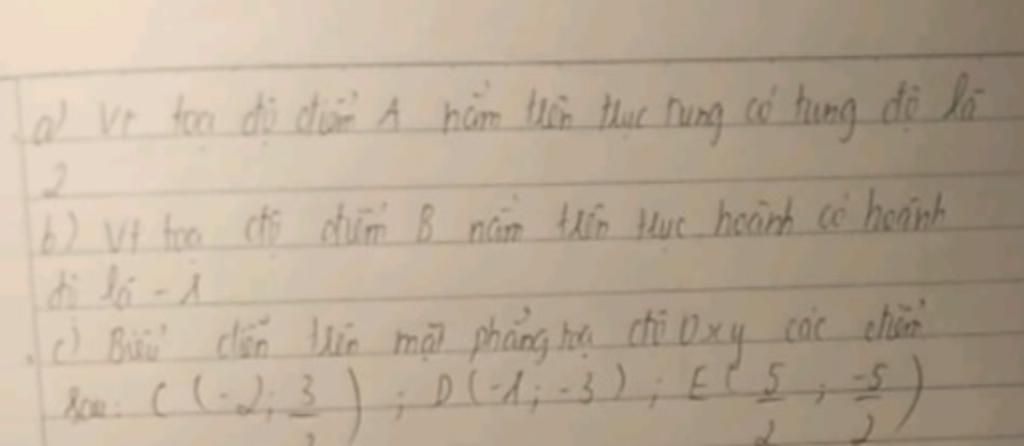 a) Vt toạ độ điểm A nằm trên trục tung có tung độ là
2
b) Vt toạ độ điểm B nằm trên trục hoành có hoành
độ là -1
c) Biểu diễn trên mặt phẳng toạ độ Oxy các điểm
sau: C(-2; 3/2); D(-1; -3); E(5/2; -5/2)